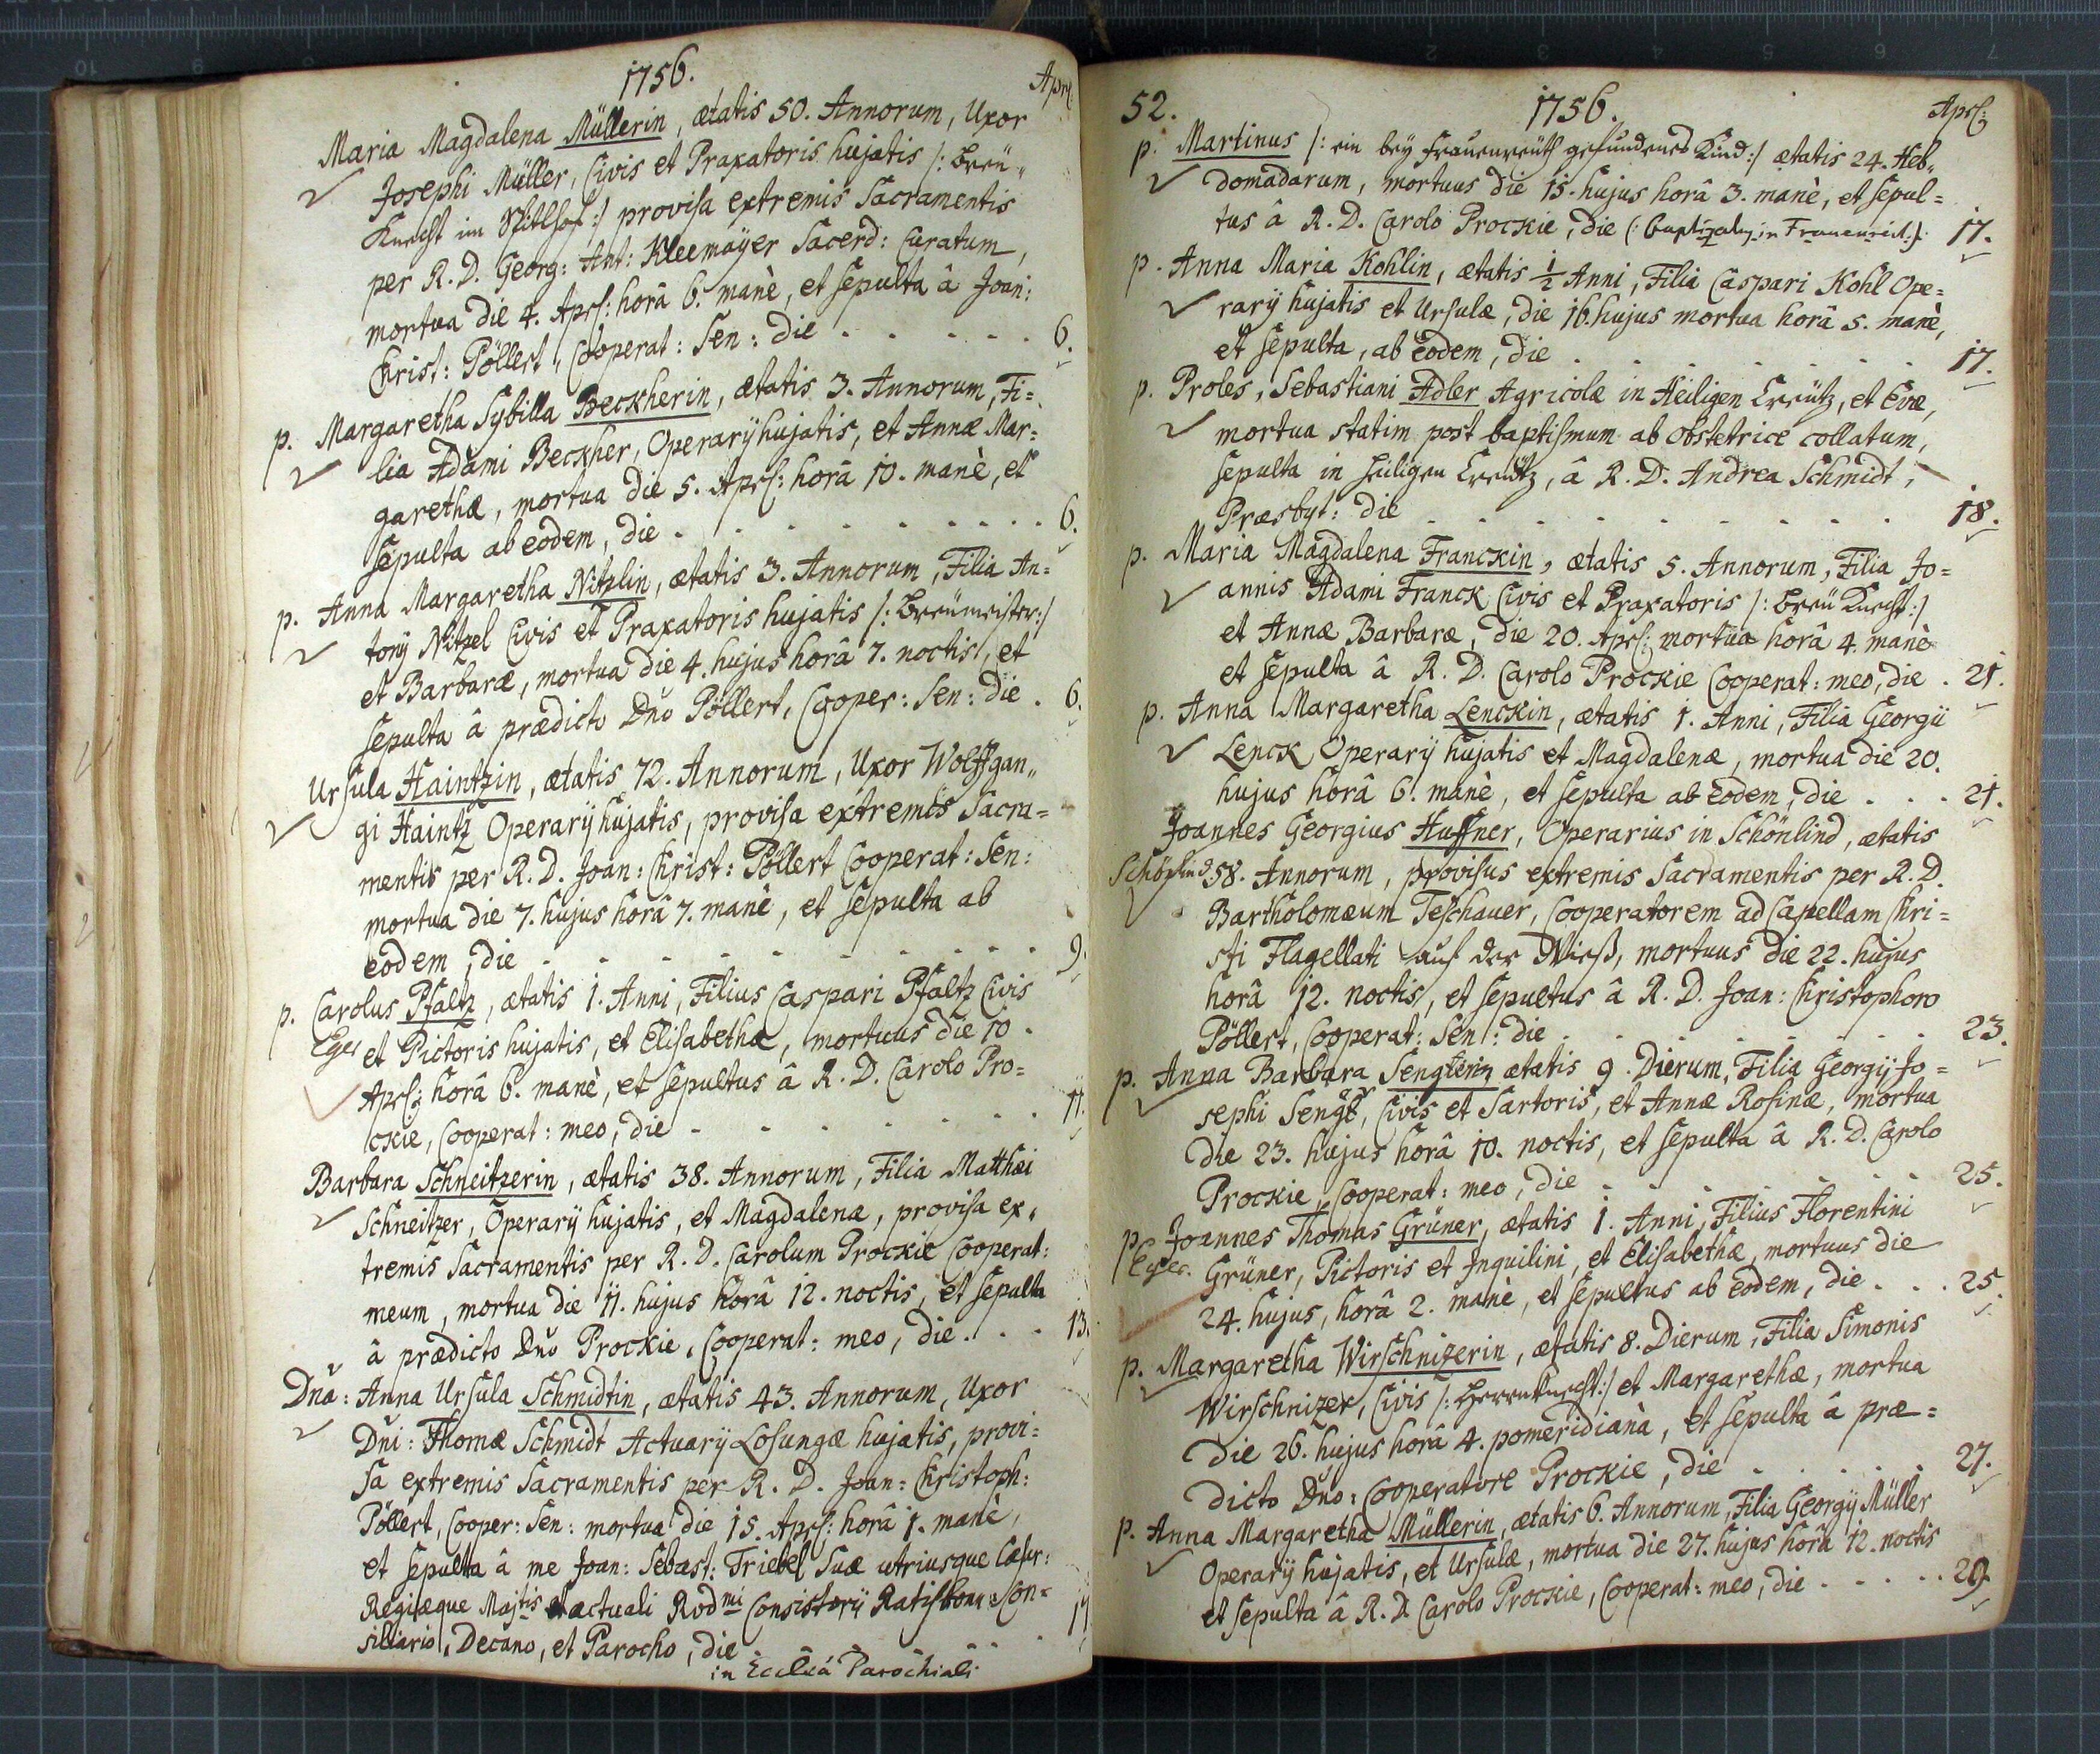 1756.
Apr:
Maria Magdalena Müllerin, ætatis 50. Annorum, Uxor
Josephi Müller, Civis et Praxatoris hujatis /: breü„
Knecht im Spitlhof :/ provisa extremis Sacramentis
per R. D. Georg: Ant: Kleemaÿer Sacerd: Curatum,
mortua die 4. Apr: horâ 6. manè, et sepulta â Joan:
Christ: Pöllert, Cooperat: Sen: die . . . . . 6.
p. Margaretha Sybilla Beckherin, ætatis 3. Annorum, Fi=
lia Adami Beckher, Operarÿ hujatis, et Annæ Mar=
garethæ, mortua die 5. Apr: horâ 10. manè, et
sepulta ab eodem, die . . . . . . . . . 6.
p. Anna Margaretha Nitzlin, ætatis 3. Annorum, Filia An=
tonÿ Nitzel Civis et Praxatoris hujatis /: Breümeister :/
et Barbaræ, mortua die 4. hujus horâ 7. noctis, et
sepulta â prædicto Dño Pöllert, Cooper: Sen: die . 6.
Ursula Haintzin, ætatis 72. Annorum, Uxor Wolffgan„
gi Haintz Operarÿ hujatis, provisa extremis Sacra=
mentis per R. D. Joan: Christ: Pöllert Cooperat: Sen:
mortua die 7. hujus horâ 7. manè, et sepulta ab
eodem, die . . . . . . . . . 9.
p. Carolus Pfaltz, ætatis 1. Anni, Filius Caspari Pfaltz Civis
Eger et Pictoris hujatis, et Elisabethæ, mortuus die 10.
Apr: horâ 6. manè, et sepultus â R. D. Carolo Pro=
ckie, Cooperat: meo, die . . . . . . . 11.
Barbara Schneitzerin, ætatis 38. Annorum, Filia Matthæi
Schneitzer, Operarÿ hujatis, et Magdalenæ, provisa ex„
tremis Sacramentis per R. D. Carolum Prockie Cooperat:
meum, mortua die 11. hujus horâ 12. noctis, et sepulta
â prædicto Dño Prockie, Cooperat: meo, die . . . 13.
Dña: Anna Ursula Schmidtin, ætatis 43. Annorum, Uxor
Dñi: Thomæ Schmidt Actuarÿ Losungæ hujatis, provi=
sa extremis Sacramentis per R. D. Joan: Christoph:
Pöllert, Cooper: Sen: mortua die 15. Apr: horâ 1. manè,
et sepulta â me Joan: Sebast: Triebel Suæ utriusque Cæsar:
Regiæque Majtis et actuali Rvdmi Consistorÿ Ratisbon: Con=
siliario, Decano, et Parocho, die . . . . .
in Ecclia Parochiali
52.
1756.
Apr:
p. Martinus /: ein beÿ Frauenreüth gefundenes Kind :/ ætatis 24. Heb„
domadarum, mortuus die 15. hujus horâ 3. manè, et sepul=
tus â R. D. Carolo Prockie, die (: baptizatus in Frauenreid :). 17.
p. Anna Maria Kohlin, ætatis 1/2 Anni, Filia Caspari Kohl Ope=
rarÿ hujatis et Ursulæ, die 16. hujus mortua horâ 5. manè,
et sepulta, ab eodem, die . . . . . . . 17.
p. Proles, Sebastiani Adler Agricolæ in Heiligen Creütz, et Evæ,
mortua statim post baptismum ab obstetrice collatum,
sepulta in Heiligen Creütz, â R. D. Andrea Schmidt,
Præsbyt: die . . . . . . . . . 18.
p. Maria Magdalena Franckin, ætatis 5. Annorum, Filia Jo=
annis Adami Franck Civis et Praxatoris /: breü Knecht :/
et Annæ Barbaræ, die 20. Apr: mortua horâ 4. manè
et sepulta â R. D. Carolo Prockie Cooperat: meo, die . 21.
p. Anna Margaretha Lenckin, ætatis 1. Anni, Filia Georgÿ
Lenck Operarÿ hujatis et Magdalenæ, mortua die 20.
hujus horâ 6. manè, et sepulta ab eodem, die . . . 21.
Joannes Georgius Huffner, Operarius in Schönlind, ætatis
Schönlind 58. Annorum, provisus extremis Sacramentis per R. D.
Bartholomæum Teschauer, Cooperatorem ad Capellam Chri=
sti Flagellati auf der Wieß, mortuus die 22. hujus
horâ 12. noctis, et sepultus â R. D. Joan: Christophoro
Pöllert, Cooperat: Sen: die . . . . . . . 23.
p. Anna Barbara Senglerin ætatis 9. Dierum, Filia Georgÿ Jo=
sephi Sengl, Civis et Sartoris, et Annæ Rosinæ, mortua
die 23. hujus horâ 10. noctis, et sepulta â R. D. Carolo
Prockie, Cooperat: meo, die . . . . . . 25.
p. Joannes Thomas Grüner, ætatis 1. Anni, Filius Florentini
Eger. Grüner, Pictoris et Inquilini, et Elisabethæ, mortuus die
24. hujus, horâ 2. manè, et sepultus ab eodem, die . . . 25.
p. Margaretha Wirschnizerin, ætatis 8. Dierum, Filia Simonis
Wirschnizer, Civis /: Herrenknecht :/ et Margarethæ, mortua
die 26. hujus horâ 4. pomeridianà, et sepulta â præ=
dicto Dño: Cooperatore Prockie, die . . . . . 27.
p. Anna Margaretha Müllerin, ætatis 6. Annorum, Filia Georgÿ Müller
Operarÿ hujatis, et Ursulæ, mortua die 27. hujus horâ 12. noctis
et sepulta â R. D. Carolo Prockie, Cooperat: meo, die . . . . . 29.